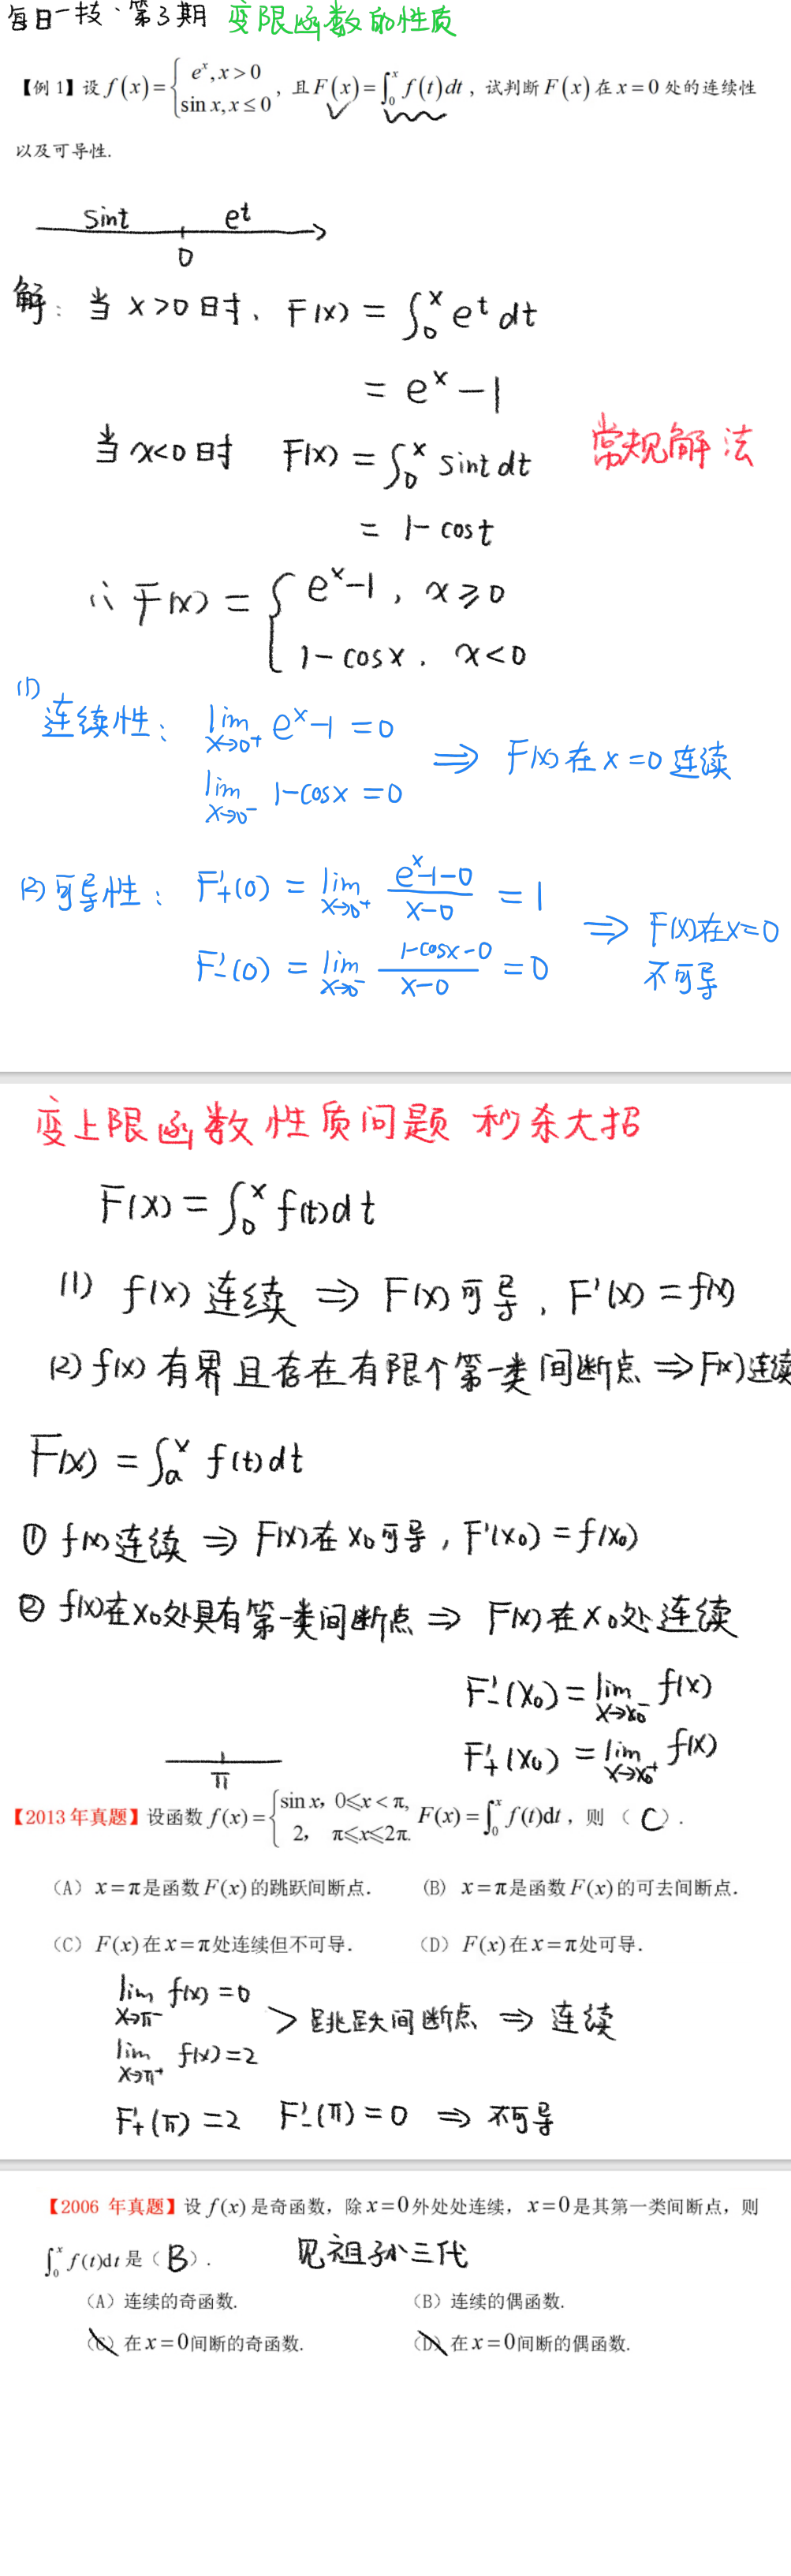 每日一技·第3期 变限函数的性质
【例 1】设 f(x)={e^x, x>0; sin x, x≤0, 且 F(x)=∫_0^x f(t)dt, 试判断 F(x) 在 x=0 处的连续性
以及可导性.
sint e^t
0
解: 当 x>0 时, F(x) = ∫_0^x e^t dt
= e^x -1
当 x<0 时 F(x) = ∫_0^x sint dt 常规解法
= 1-cost
∴ F(x) = {e^x-1, x≥0
1-cosx. x<0
(1) 连续性: lim_{x→0^+} e^x-1 =0
lim_{x→0^-} 1-cosx =0 ⟹ F(x)在 x=0 连续
(2) 可导性: F'_+(0) = lim_{x→0^+} (e^x-1-0)/(x-0) = 1
F'_-(0) = lim_{x→0^-} (1-cosx-0)/(x-0) = 0 ⟹ F(x)在x=0 不可导
变上限函数性质问题 秒杀大招
F(x) = ∫_0^x f(t)dt
(1) f(x) 连续 ⟹ F(x)可导, F'(x) = f(x)
(2) f(x) 有界且存在有限个第一类间断点 ⟹ F(x)连续
F(x) = ∫_a^x f(t)dt
① f(x)连续 ⟹ F(x)在 x_0可导, F'(x_0) = f(x_0)
② f(x)在x_0处具有第一类间断点 ⟹ F(x)在x_0处连续
F'_-(x_0) = lim_{x→x_0^-} f(x)
F'_+(x_0) = lim_{x→x_0^+} f(x)
π
【2013 年真题】设函数 f(x)={sin x, 0≤x<π, 2, π≤x≤2π. F(x)=∫_0^x f(t)dt, 则 ( C ).
(A) x=π是函数 F(x)的跳跃间断点. (B) x=π是函数 F(x)的可去间断点.
(C) F(x)在 x=π处连续但不可导. (D) F(x)在 x=π处可导.
lim_{x→π^-} f(x) =0
> 跳跃间断点 ⟹ 连续
lim_{x→π^+} f(x)=2
F'_+(π) =2 F'_-(π) =0 ⟹ 不可导
【2006 年真题】设 f(x) 是奇函数, 除 x=0外处处连续, x=0是其第一类间断点, 则
∫_0^x f(t)dt 是 ( B ). 见祖孙三代
(A) 连续的奇函数. (B) 连续的偶函数.
(C) 在 x=0间断的奇函数. (D) 在 x=0间断的偶函数.